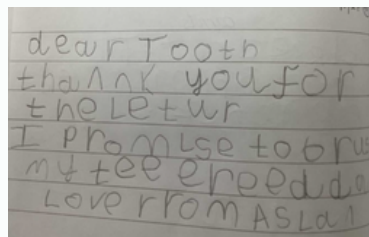 dear Tooth
thannk you for
the Letur
I promise to brus
my tee ereedda
Love from ASLan